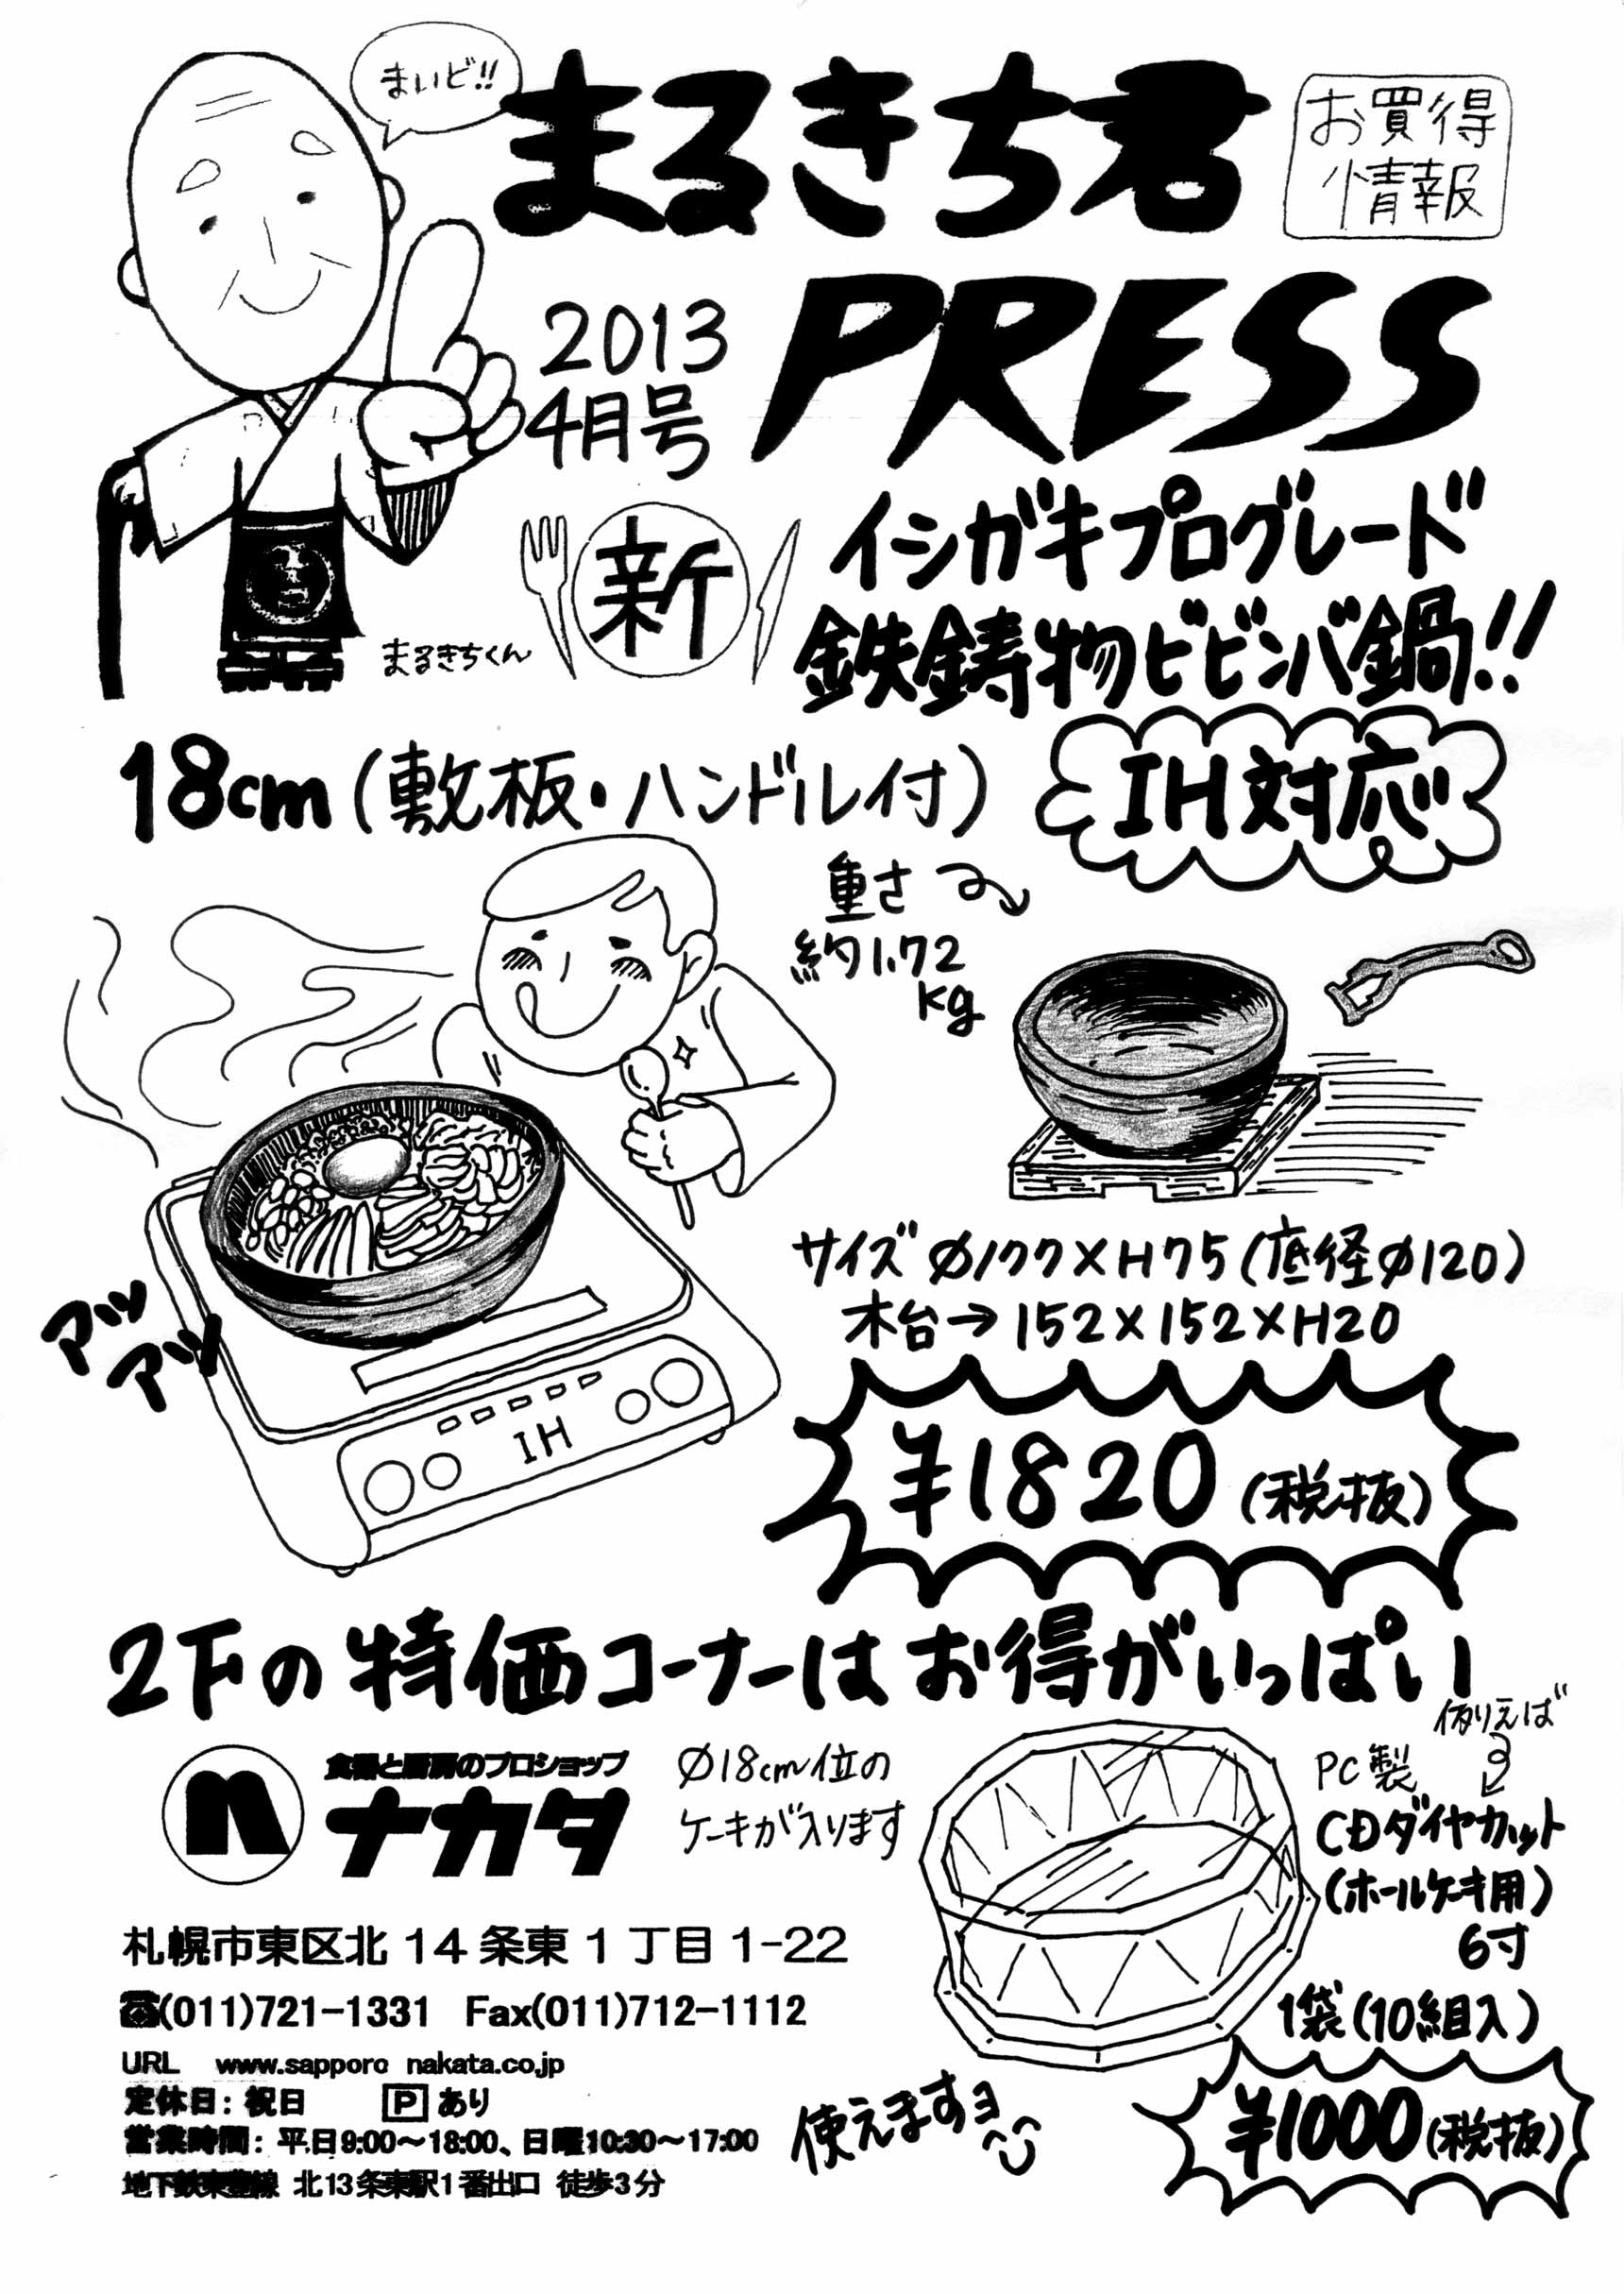 まいど!!
まるきち君
お買得
情報
PRESS
2013
4月号
まるきちくん
新
イシガキプログレード
鉄鋳物ビビンバ鍋!!
18cm(敷板・ハンドル付)
IH対応
重さ
約1.72
kg
サイズ φ177×H75(底径φ120)
木台→152×152×H20
アツ
アツ
IH
¥1820(税抜)
2Fの特価コーナーはお得がいっぱい
例えば
食器と厨房のプロショップ
ナカタ
φ18cm位の
ケーキが入ります
PC製
CDダイヤカット
(ホールケーキ用)
6寸
1袋(10組入)
¥1000(税抜)
使えますヨ
札幌市東区北14条東1丁目1-22
☎(011)721-1331 Fax(011)712-1112
URL www.sapporo nakata.co.jp
定休日: 祝日 P あり
営業時間: 平日9:00〜18:00、日曜10:30〜17:00
地下鉄東豊線 北13条東駅1番出口 徒歩3分